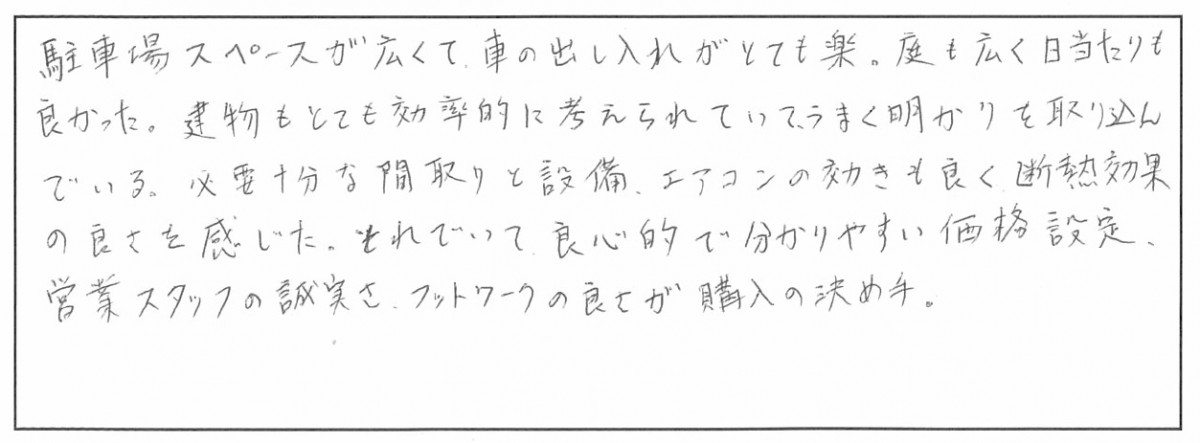 駐車場スペースが広くて、車の出し入れがとても楽。庭も広く日当たりも
良かった。建物もとても効率的に考えられていて、うまく明かりを取り込ん
でいる。必要十分な間取りと設備、エアコンの効きも良く、断熱効果
の良さを感じた。それでいて、良心的で分かりやすい価格設定、
営業スタッフの誠実さ、フットワークの良さが購入の決め手。